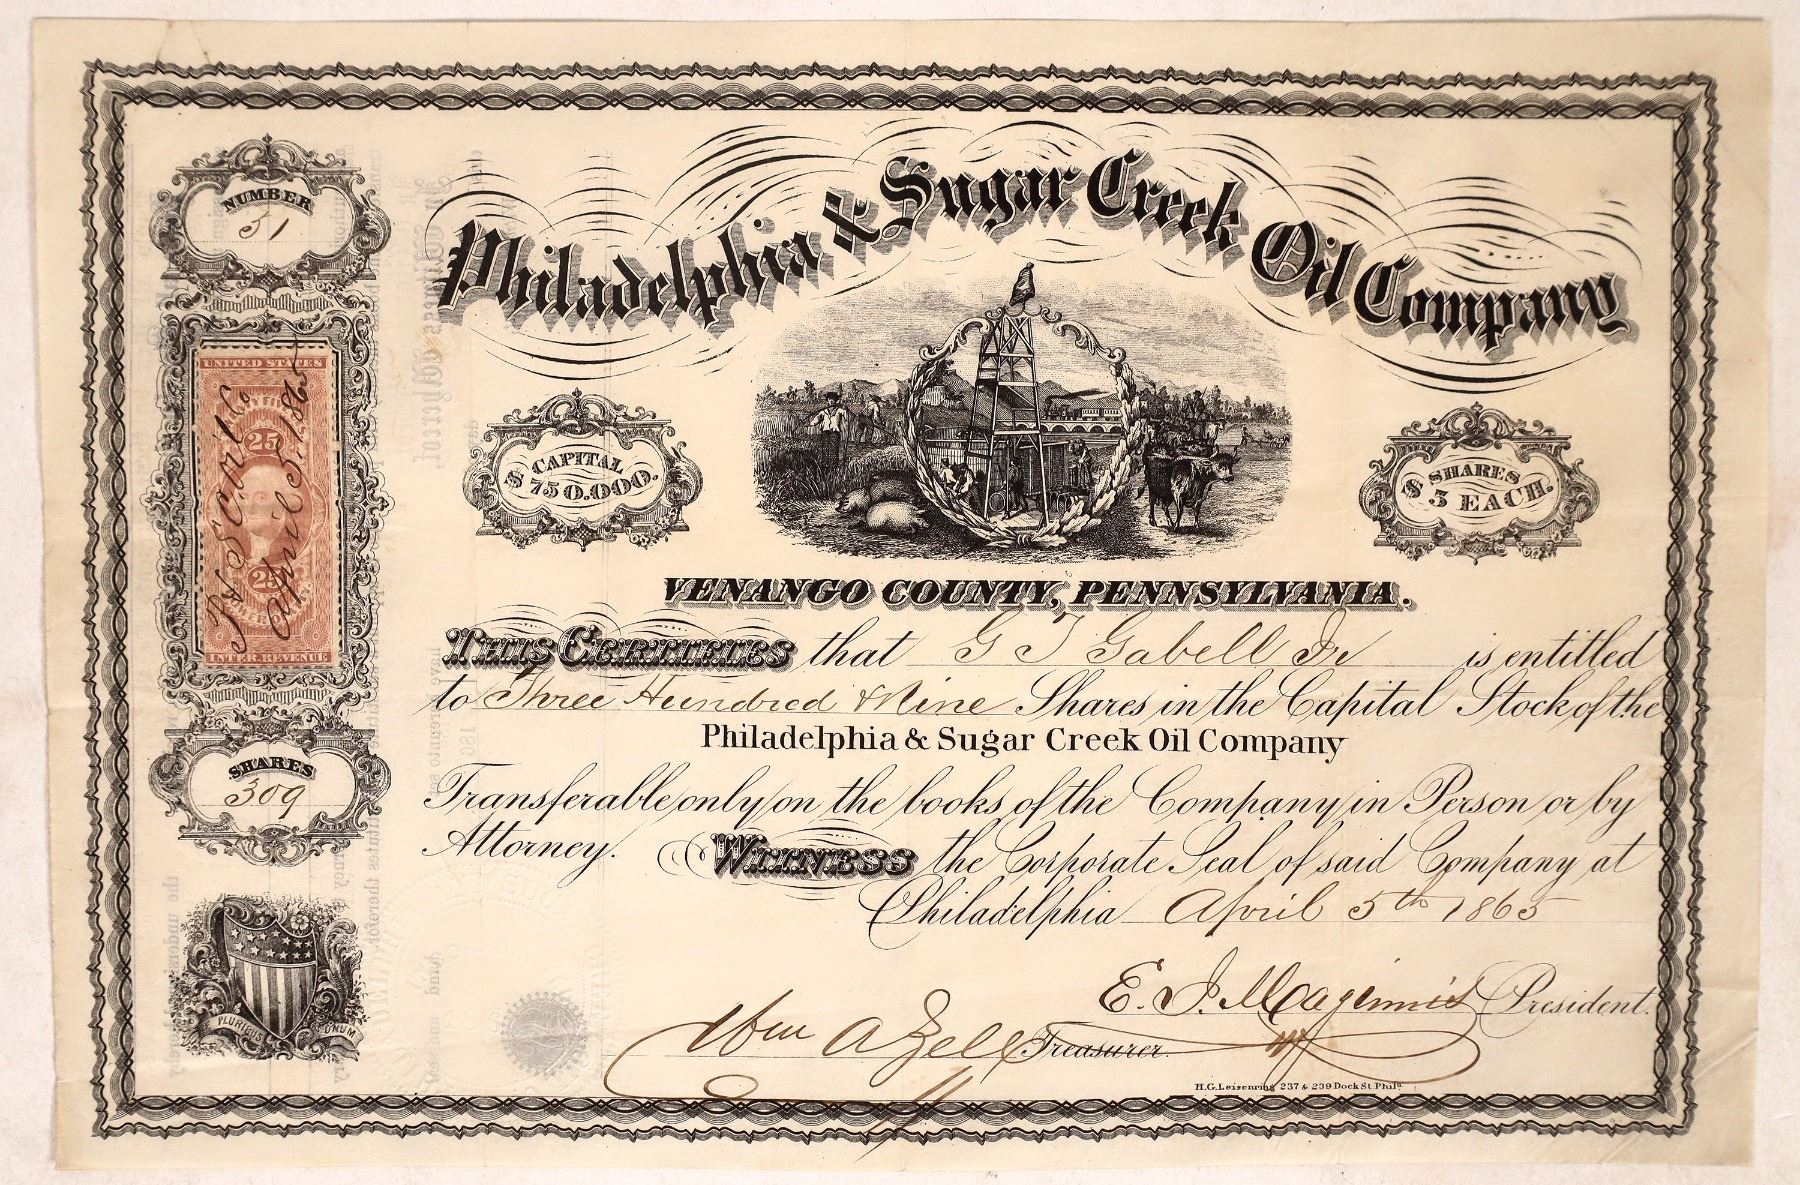 Philadelphia & Sugar Creek Oil Company
NUMBER
51
UNITED STATES
25
25
INTER. REVENUE
April 5. 1865
CAPITAL
$750.000.
SHARES
$5 EACH.
VENANGO COUNTY, PENNSYLVANIA.
This Certifies that G T Gabell Jr is entitled
to Three Hundred & Nine Shares in the Capital Stock of the
Philadelphia & Sugar Creek Oil Company
Transferable only on the books of the Company in Person or by
Attorney. Witness the Corporate Seal of said Company at
Philadelphia April 5th 1865
SHARES
309
PLURIBUS UNUM
E. J. Maginnis President.
Wm A Zell Treasurer.
H.G. Leisenring 237 & 239 Dock St. Phila